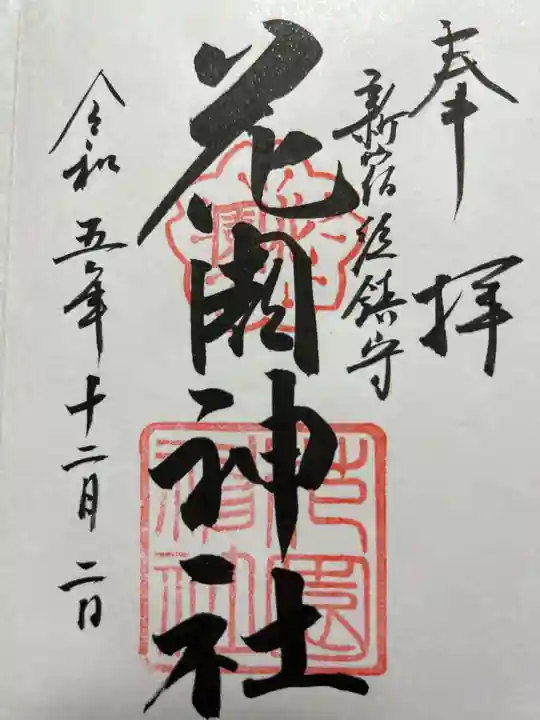 奉拝
新宿総鎮守
花園神社
令和五年十二月二日
花園
神社